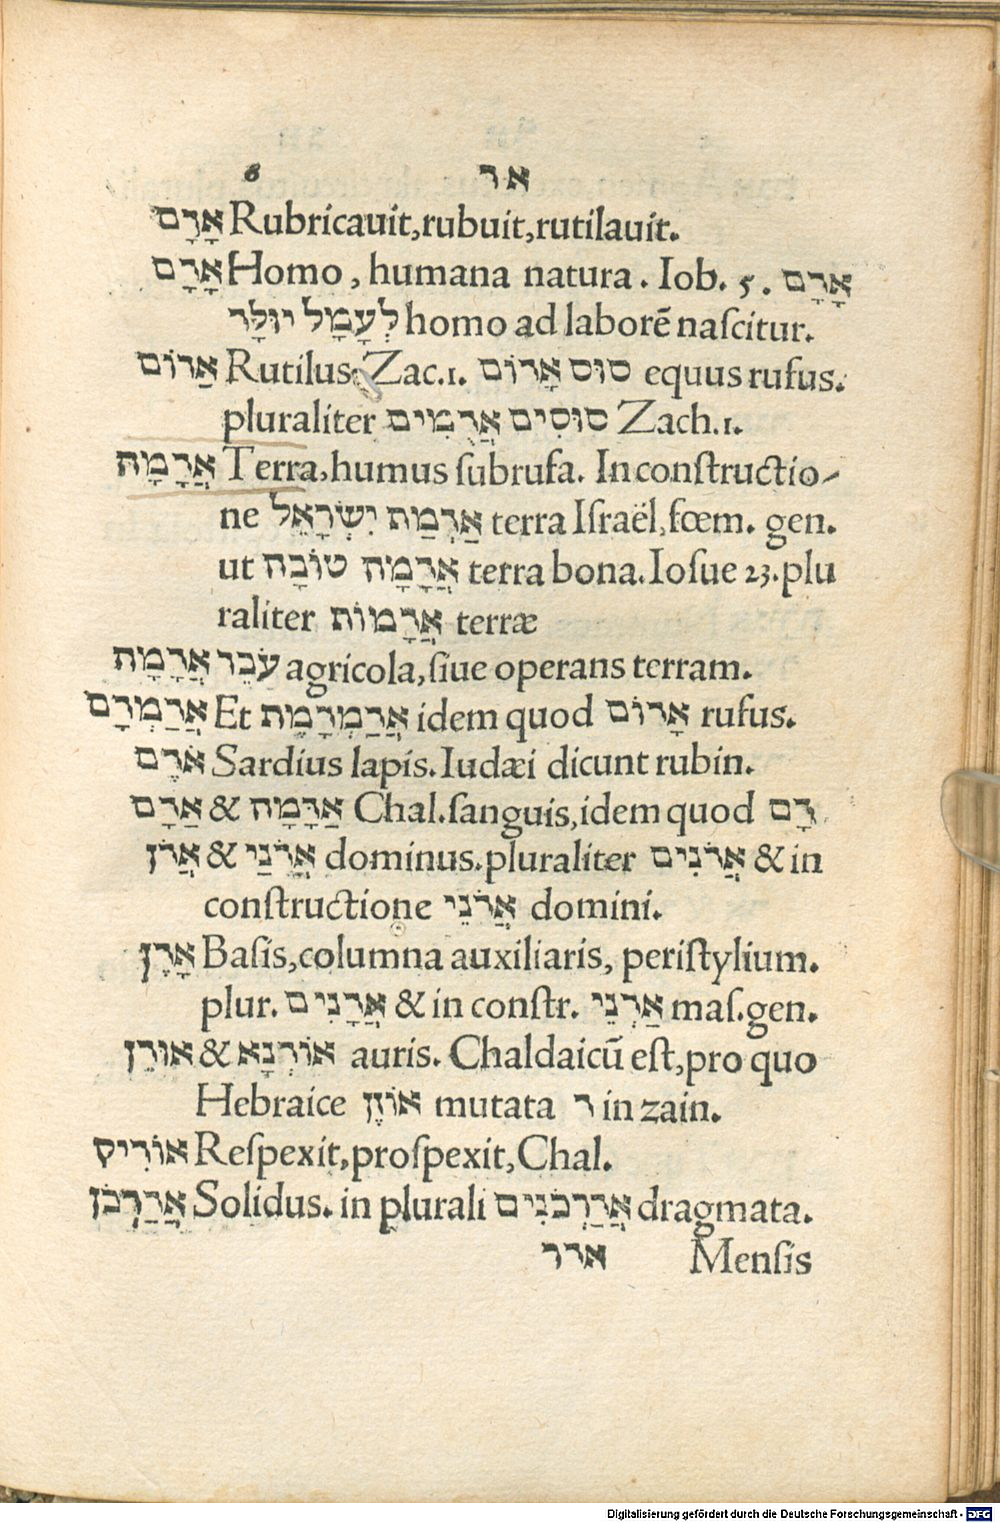 6 אד
אָדָם Rubricauit, rubuit, rutilauit.
אָדָם Homo, humana natura. Iob. 5. אָדָם
לְעָמָל יוּלָּד homo ad laborē naſcitur.
אַדוֹם Rutilus Zac.1. סוּס אָדוֹם equus rufus.
pluraliter סוּסִים אֲדֻמִּים Zach.1.
אֲדָמָה Terra, humus ſubrufa. In conſtructio-
ne אַדְמַת יִשְׂרָאֵל terra Iſraël, fœm. gen.
ut אֲדָמָה טוֹבָה terra bona. Ioſue 23. plu
raliter אֲדָמוֹת terræ
עֹבֵד אֲדָמָה agricola, ſiue operans terram.
אֲדַמְדָם Et אֲדַמְדָמֶת idem quod אָדוֹם rufus.
אֹדֶם Sardius lapis. Iudæi dicunt rubin.
אַדָם & אַדָּמָה Chal. ſanguis, idem quod דָּם
אֲדֹן & אֲדֹנַי dominus. pluraliter אֲדֹנִים & in
conſtructione אֲדֹנֵי domini.
אָדֶן Baſis, columna auxiliaris, periſtylium.
plur. אֲדָנִים & in conſtr. אַדְנֵי maſ. gen.
אוּדֵן & אוֹדְנָא auris. Chaldaicū eſt, pro quo
Hebraice אוֹזֶן mutata ד in zain.
אוֹדִיק Reſpexit, proſpexit, Chal.
אֲדַרְכֹּן Solidus. in plurali אֲדַרְכֹּנִים dragmata.
אדר Menſis
Digitalisierung gefördert durch die Deutsche Forschungsgemeinschaft - DFG